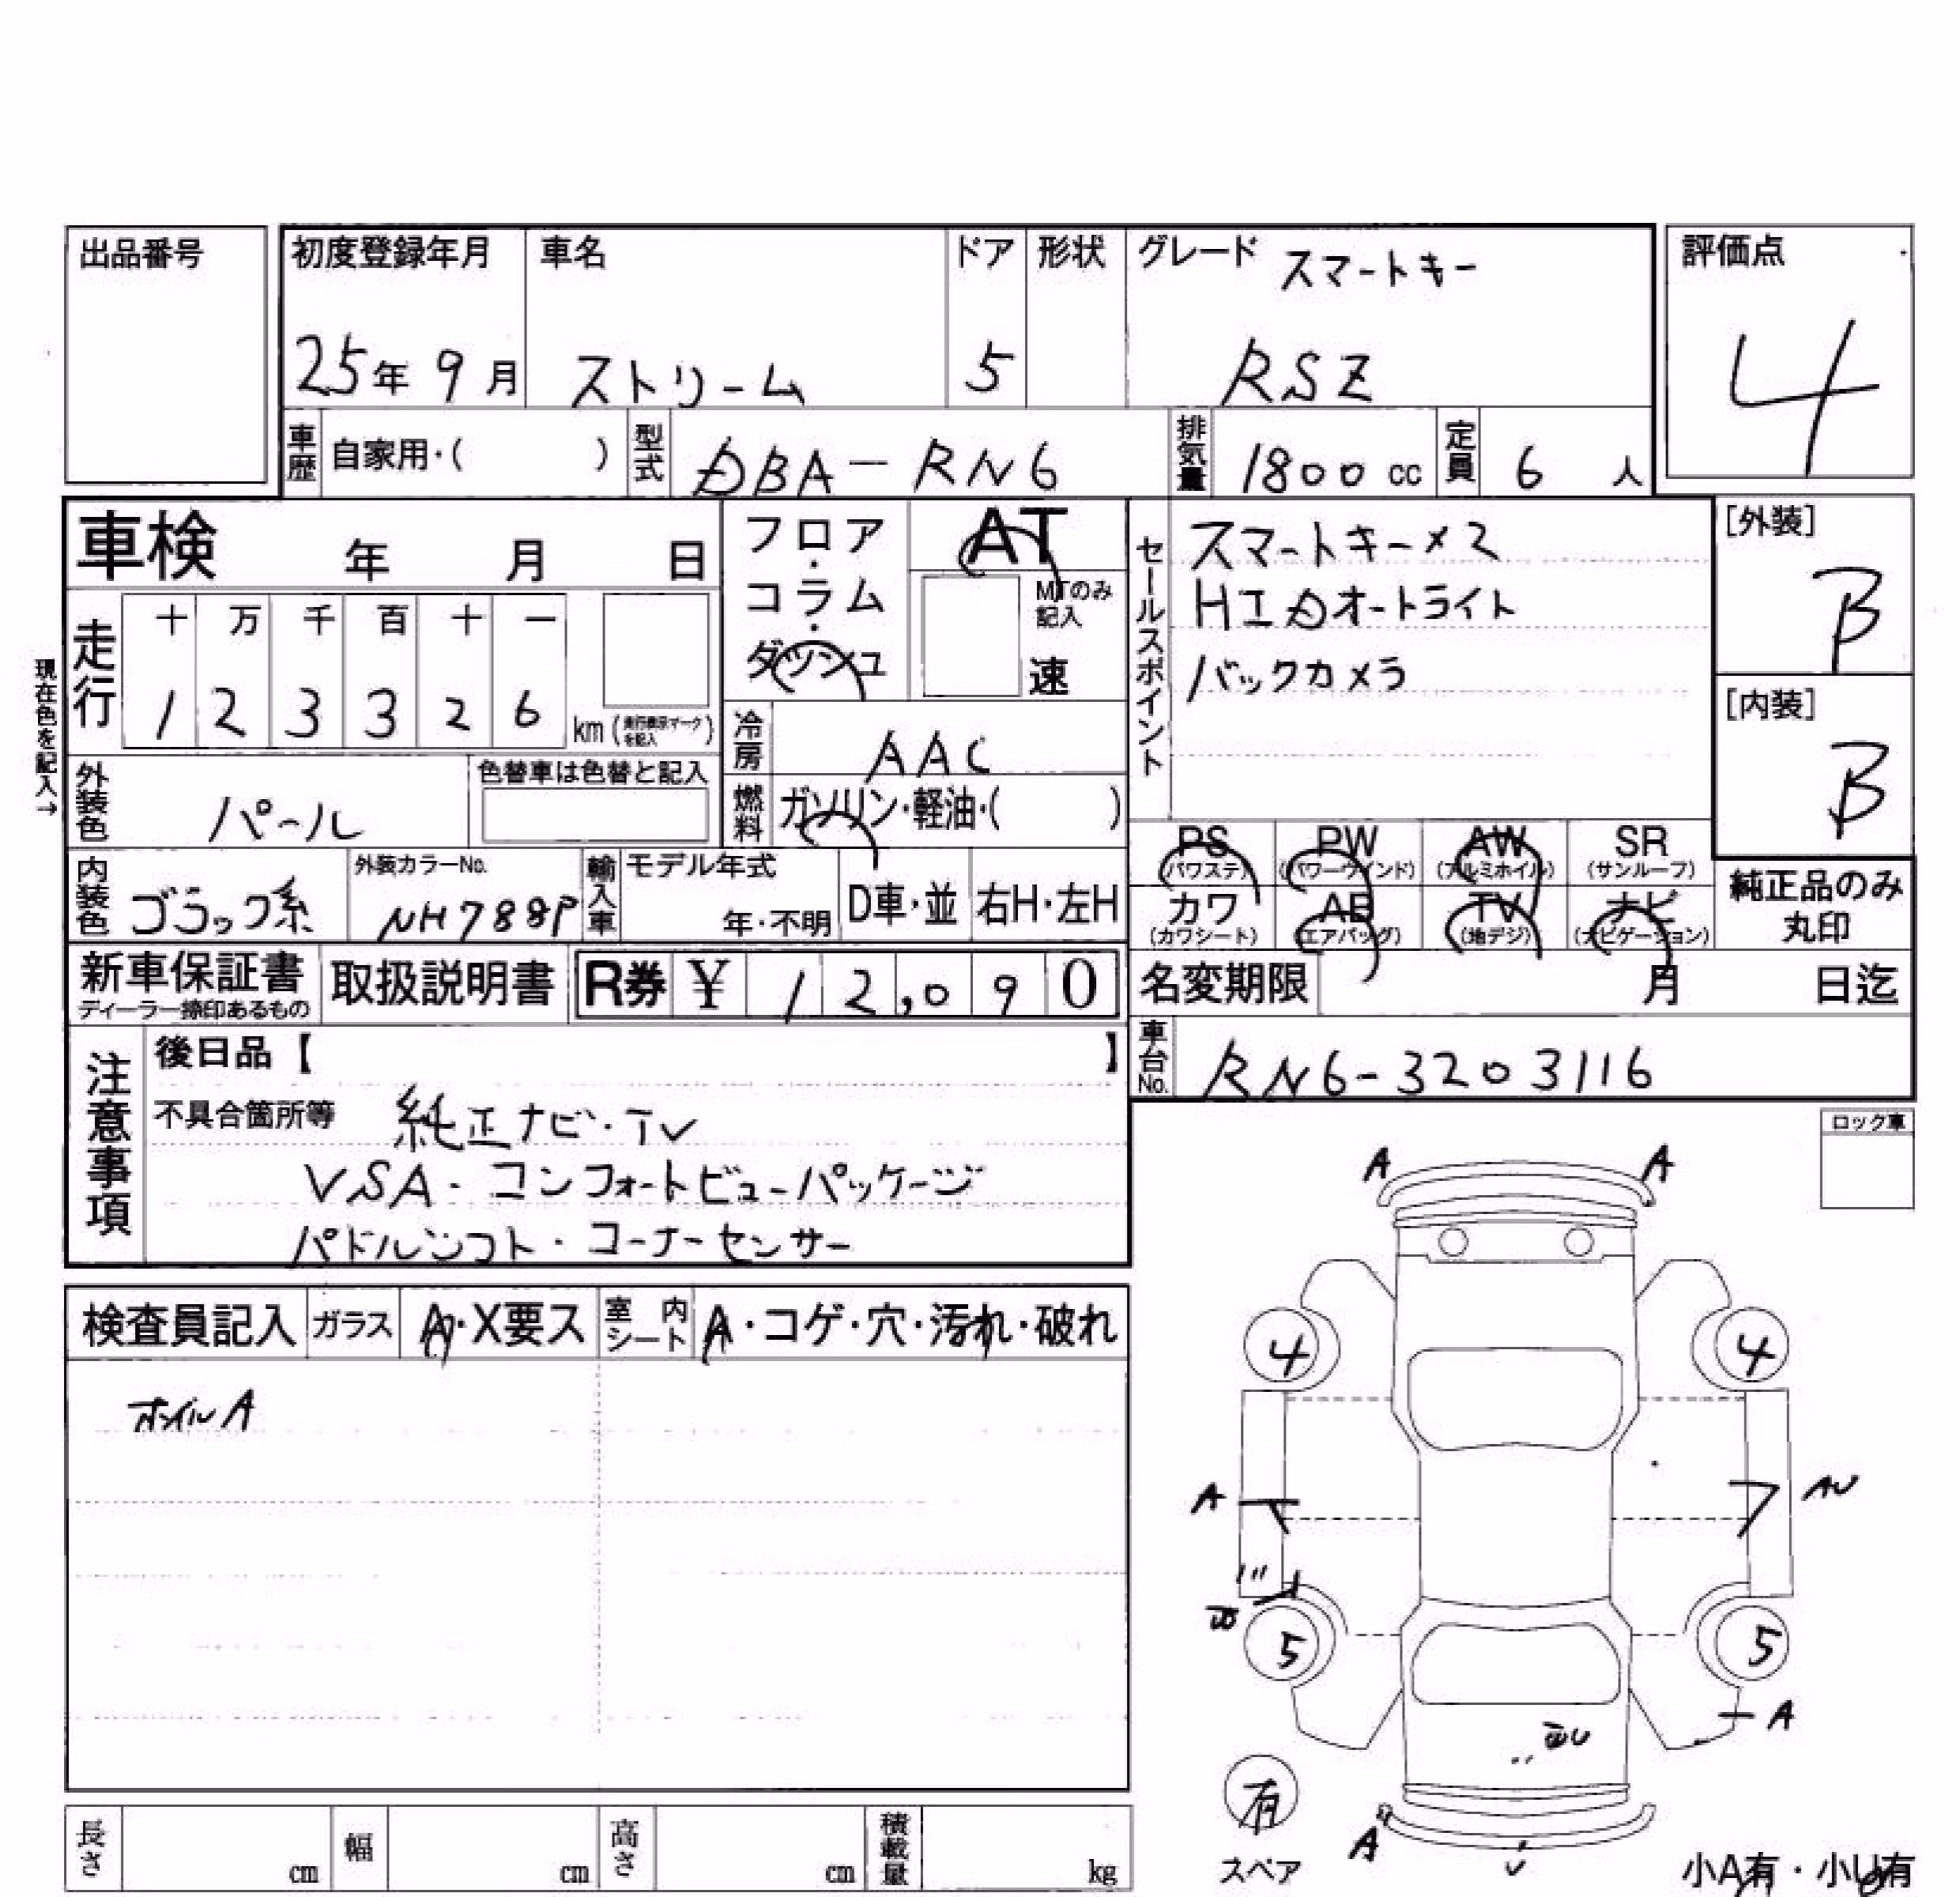 出品番号
初度登録年月 車名 ドア 形状 グレード スマートキー 評価点
25年 9月 ストリーム 5 RSZ 4
車歴 自家用・( ) 型式 DBA-RN6 排気量 1800 cc 定員 6 人
車検 年 月 日
フロア・コラム・ダッシュ AT
MTのみ記入
速
セールスポイント スマートキー×2
HIDオートライト
バックカメラ
[外装] B
[内装] B
現在色を記入→
走行 十 万 千 百 十 一
1 2 3 3 2 6 km (走行表示マークを記入)
冷房 AAC
外装色 パール 色替車は色替と記入
燃料 ガソリン・軽油・( )
PS (パワステ) PW (パワーウインド) AW (アルミホイル) SR (サンルーフ)
カワ (カワシート) AB (エアバッグ) TV (地デジ) ナビ (ナビゲーション)
純正品のみ丸印
内装色 ブラック系 外装カラーNo. NH788P 輸入車 モデル年式 年・不明 D車・並 右H・左H
新車保証書 ディーラー捺印あるもの 取扱説明書 R券 ¥ 12,090
名変期限 月 日迄
車台No. RN6-3203116
注意事項 後日品【 】
不具合箇所等 純正ナビ・TV
VSA・コンフォートビューパッケージ
パドルシフト・コーナーセンサー
ロック車
検査員記入 ガラス A・X要ス 室内シート A・コゲ・穴・汚れ・破れ
ホイルA
A A
4 4
A AU
5 5
A
有
スペア
A
小A有・小U有
長さ cm 幅 cm 高さ cm 積載量 kg